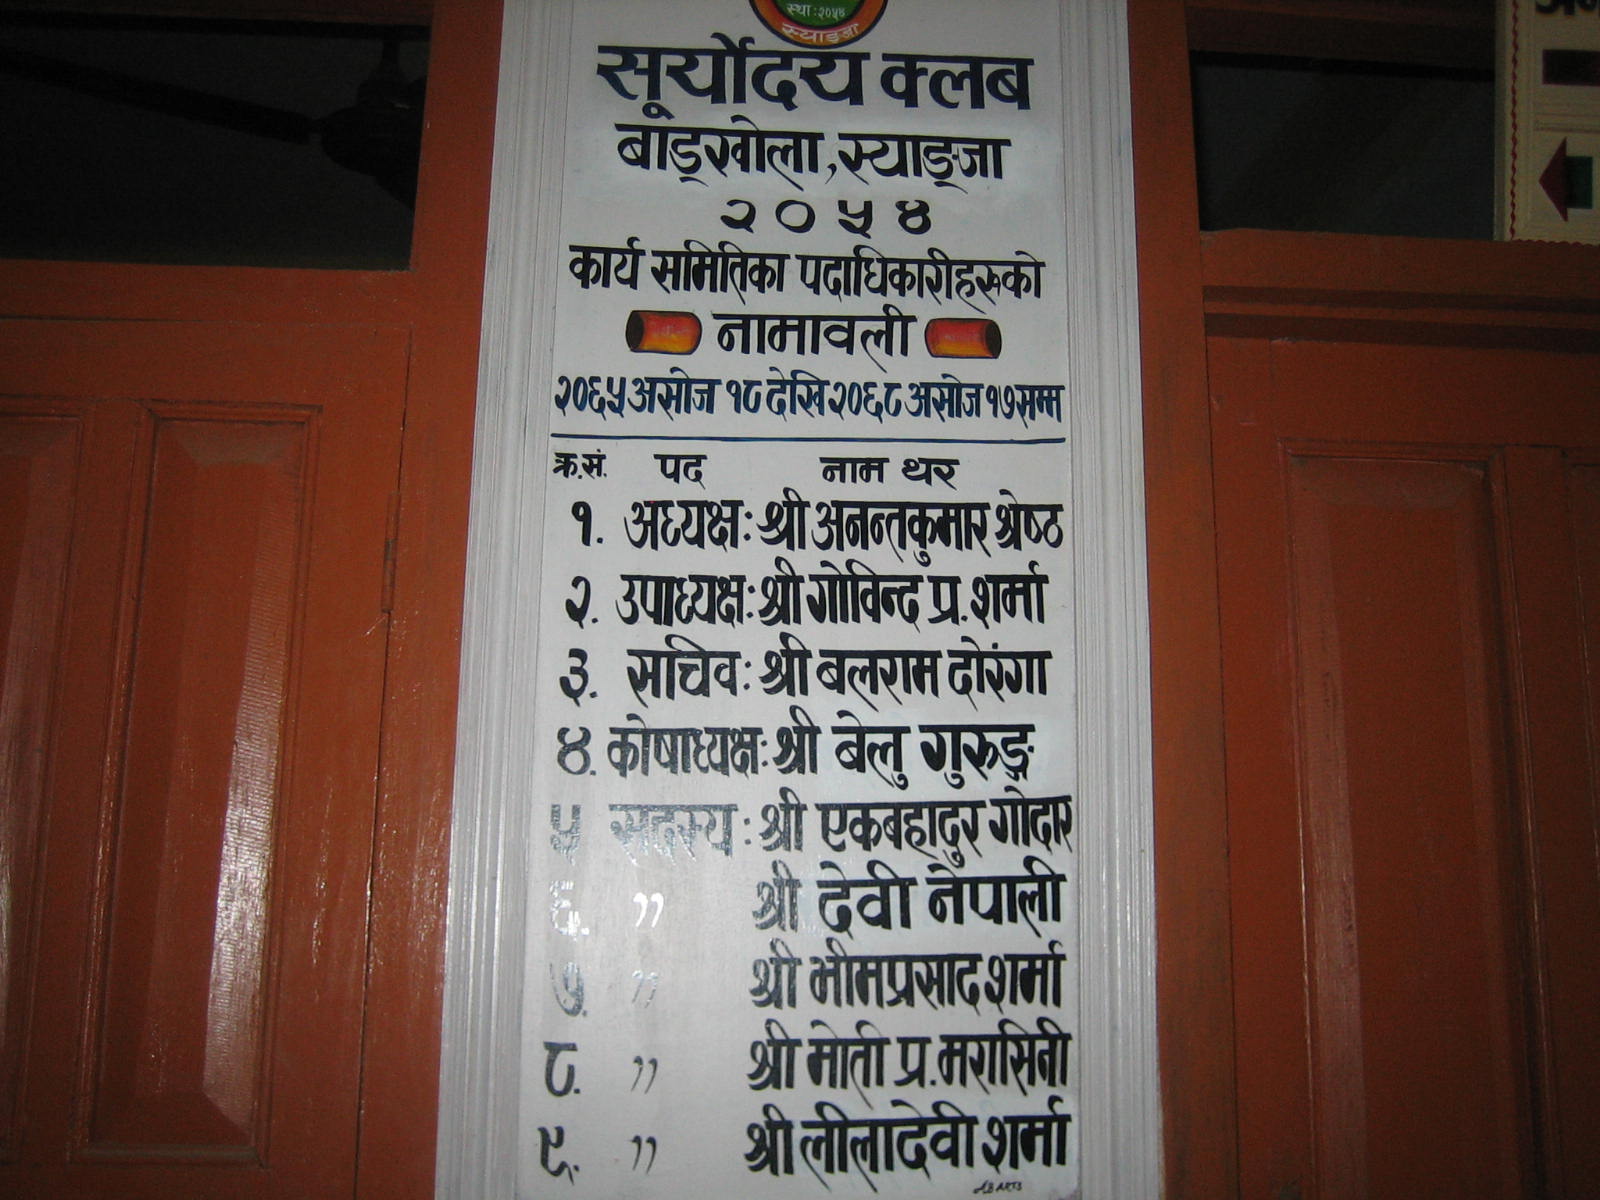 स्था : २०५४
स्याङ्जा
सूर्योदय क्लब
बाड्खोला, स्याङ्जा
२०५४
कार्य समितिका पदाधिकारीहरुको
नामावली
२०६५ असोज १८ देखि २०६८ असोज १७ सम्म
क्र.सं. पद नाम थर
१. अध्यक्ष : श्री अनन्तकुमार श्रेष्ठ
२. उपाध्यक्ष : श्री गोविन्द प्र. शर्मा
३. सचिव : श्री बलराम दोरंगा
४. कोषाध्यक्ष : श्री बेलु गुरुङ्ग
५ सदस्य : श्री एकबहादुर गोदार
६. ,, श्री देवी नेपाली
७. ,, श्री भीमप्रसाद शर्मा
८. ,, श्री मोती प्र. मरासिनी
९. ,, श्री लीलादेवी शर्मा
A.B ARTS